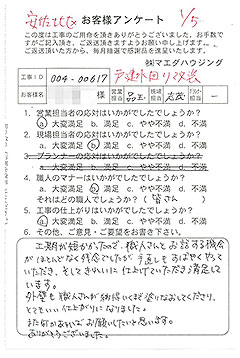 お客様アンケート 1/5
この度は工事のご用命を頂きありがとうございました。お手数で
すがご記入頂き、ご返送頂きますようお願い申し上げます。
ご返送頂いた方から、毎月抽選で感謝品を進呈いたします。
㈱マエダハウジング
工事ID 004-00617 戸建水回り改装
様 営業担当 工事担当 プランナー担当 ー
1. 営業担当者の応対はいかがでしたでしょうか?
a. 大変満足 b. 満足 c. やや不満 d. 不満
2. 現場担当者の応対はいかがでしたでしょうか?
a. 大変満足 b. 満足 c. やや不満 d. 不満
3. プランナーの応対はいかがでしたでしょうか?
a. 大変満足 b. 満足 c. やや不満 d. 不満
4. 職人のマナーはいかがでしたでしょうか?
a. 大変満足 b. 満足 c. やや不満 d. 不満
それはどの職人でしょうか?( 皆さん )
5. 工事の仕上がりはいかがでしたでしょうか?
a. 大変満足 b. 満足 c. やや不満 d. 不満
6. その他、ご意見・ご要望をお書き下さい。
工期が短かったので、職人さんとお話する機会
がほとんどなく残念でしたが、手直しもすばやくやって
いただき、そしてきれいに仕上げていただき満足して
います。
外壁も職人さんが納得いくまで塗りなおしてくださり、
とてもいい仕上がりになりました。
また何かあればお願いしたいと思います。
ありがとうございました。